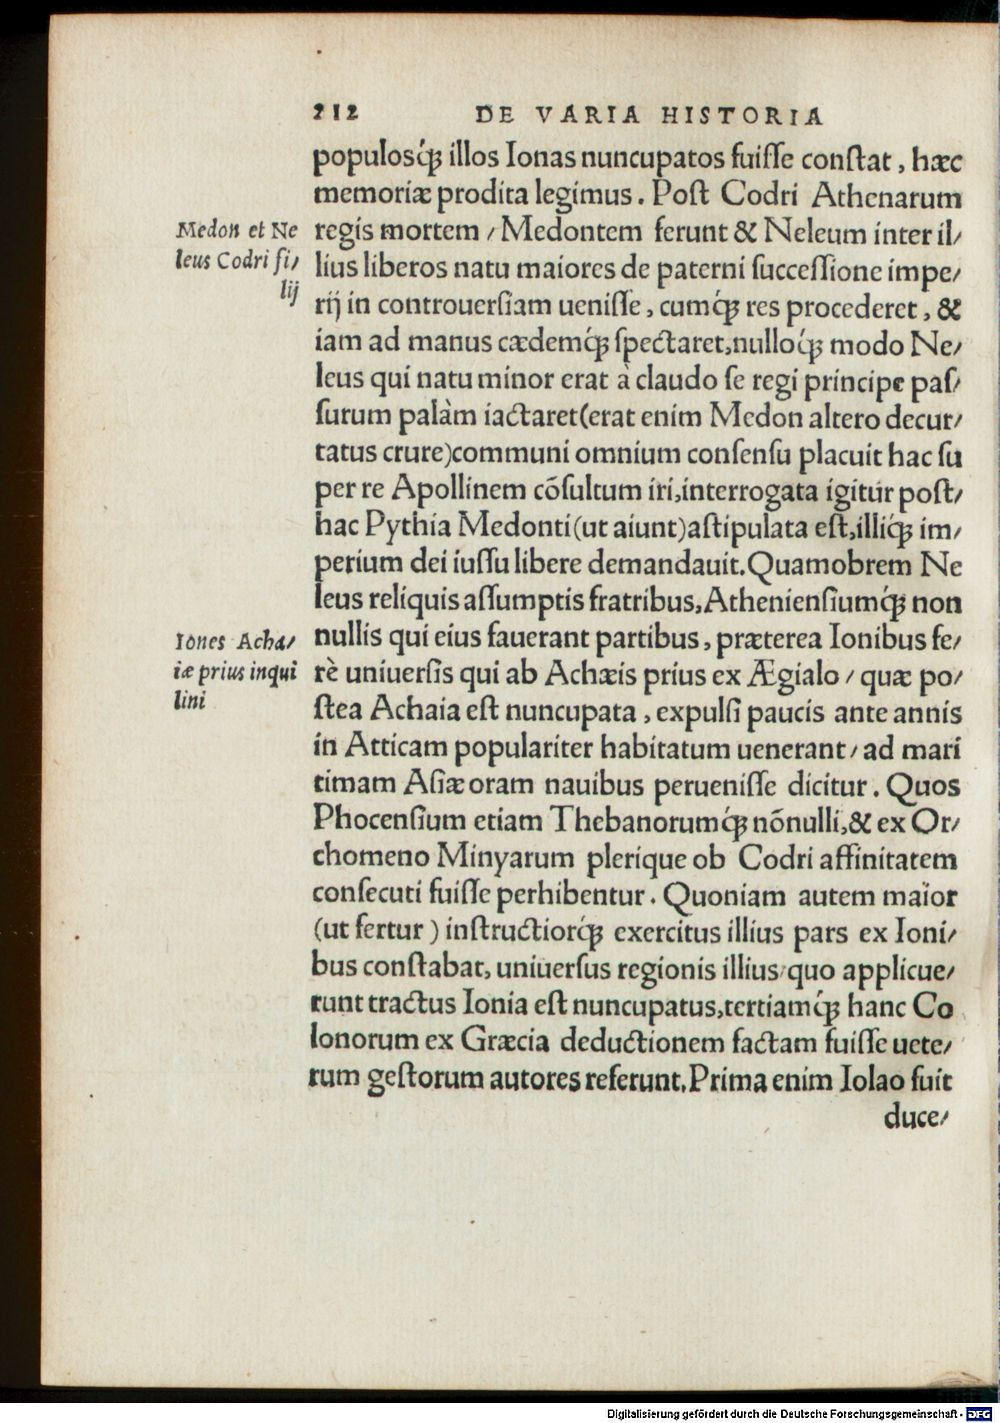 212 DE VARIA HISTORIA
populosq́ꝫ illos Ionas nuncupatos fuiſſe conſtat, hæc
memoriæ prodita legimus. Poſt Codri Athenarum
regis mortem / Medontem ferunt & Neleum inter il/
lius liberos natu maiores de paterni ſucceſſione impe/
rij in controuerſiam ueniſſe, cumq́ꝫ res procederet, &
iam ad manus cædemq́ꝫ ſpectaret, nulloq́ꝫ modo Ne/
leus qui natu minor erat à claudo ſe regi principe paſ/
ſurum palàm iactaret(erat enim Medon altero decur/
tatus crure)communi omnium conſenſu placuit hac ſu
per re Apollinem cõſultum iri, interrogata igitur poſt/
hac Pythia Medonti(ut aiunt)aſtipulata eſt, illiq́ꝫ im/
perium dei iuſſu libere demandauit. Quamobrem Ne
leus reliquis aſſumptis fratribus, Athenienſiumq́ꝫ non
nullis qui eius fauerant partibus, præterea Ionibus fe/
rè uniuerſis qui ab Achæis prius ex Ægialo / quæ po/
ſtea Achaia eſt nuncupata, expulſi paucis ante annis
in Atticam populariter habitatum uenerant / ad mari
timam Aſiæ oram nauibus perueniſſe dicitur. Quos
Phocenſium etiam Thebanorumq́ꝫ nõnulli, & ex Or/
chomeno Minyarum plerique ob Codri affinitatem
conſecuti fuiſſe perhibentur. Quoniam autem maior
(ut fertur) inſtructiorq́ꝫ exercitus illius pars ex Ioni/
bus conſtabat, uniuerſus regionis illius / quo applicue/
runt tractus Ionia eſt nuncupatus, tertiamq́ꝫ hanc Co
lonorum ex Græcia deductionem factam fuiſſe uete/
rum geſtorum autores referunt. Prima enim Iolao fuit
duce /
Medon et Ne
leus Codri fi/
lij
Iones Acha/
iæ prius inqui
lini
Digitalisierung gefördert durch die Deutsche Forschungsgemeinschaft - DFG